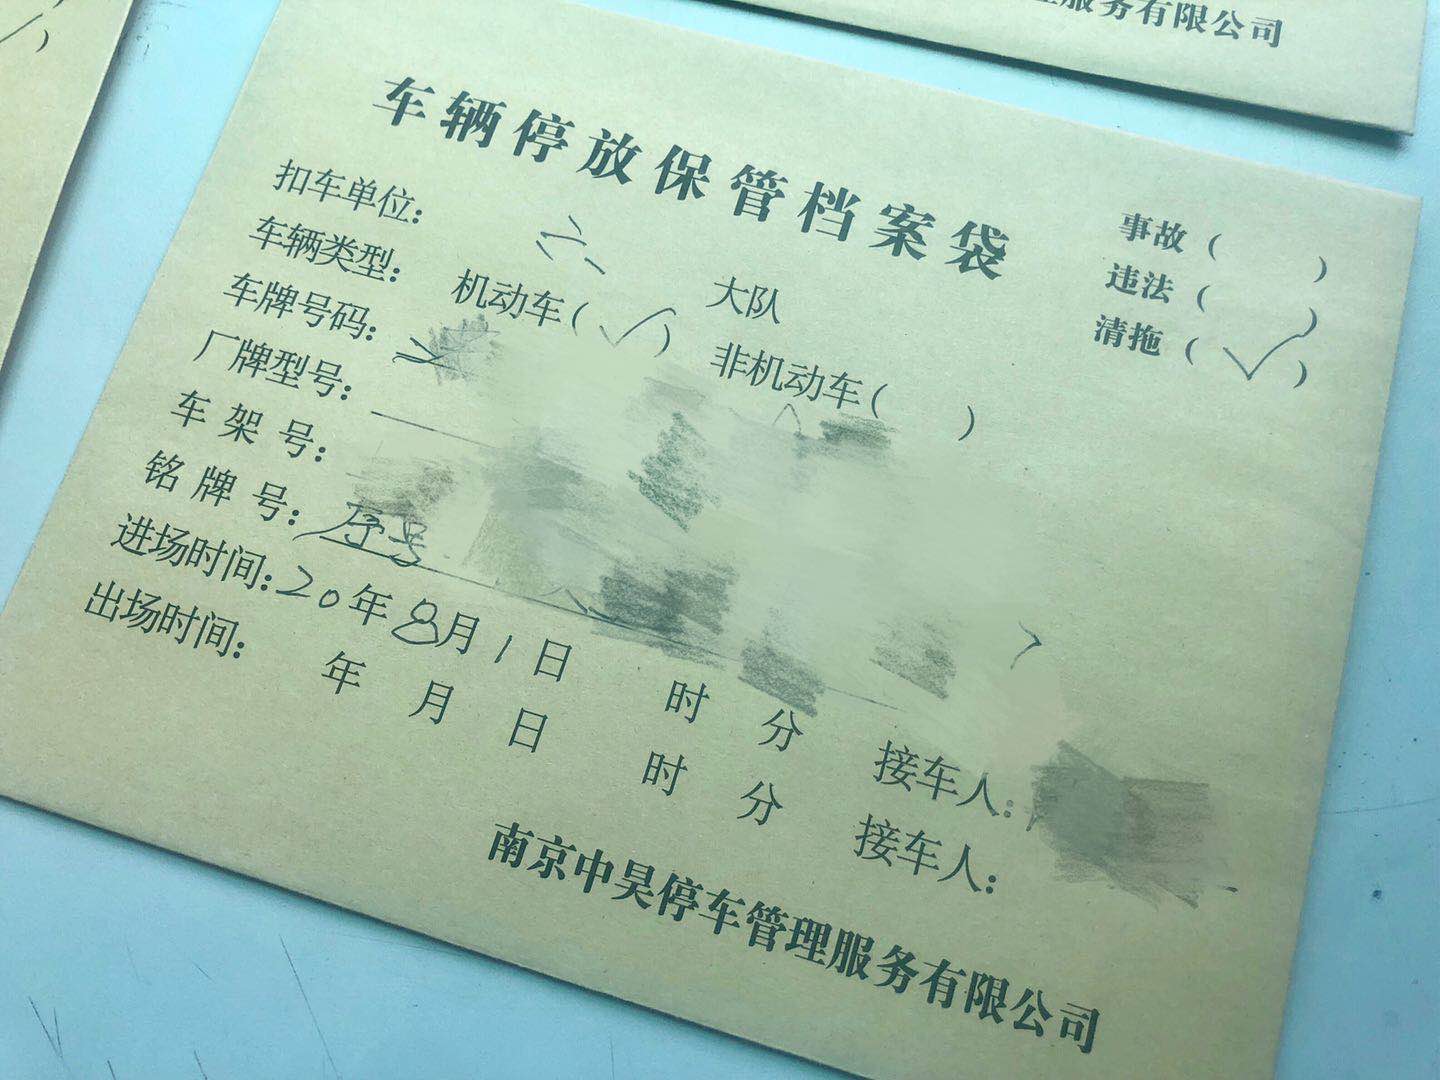 理服务有限公司
车辆停放保管档案袋
事故（ ）
违法（ ）
清拖（✓）
扣车单位： 六 大队
车辆类型： 机动车（✓） 非机动车（ ）
车牌号码：
厂牌型号：
车架号：
铭牌号： 序号
进场时间：20年8月1日 时 分 接车人：
出场时间： 年 月 日 时 分 接车人：
南京中昊停车管理服务有限公司